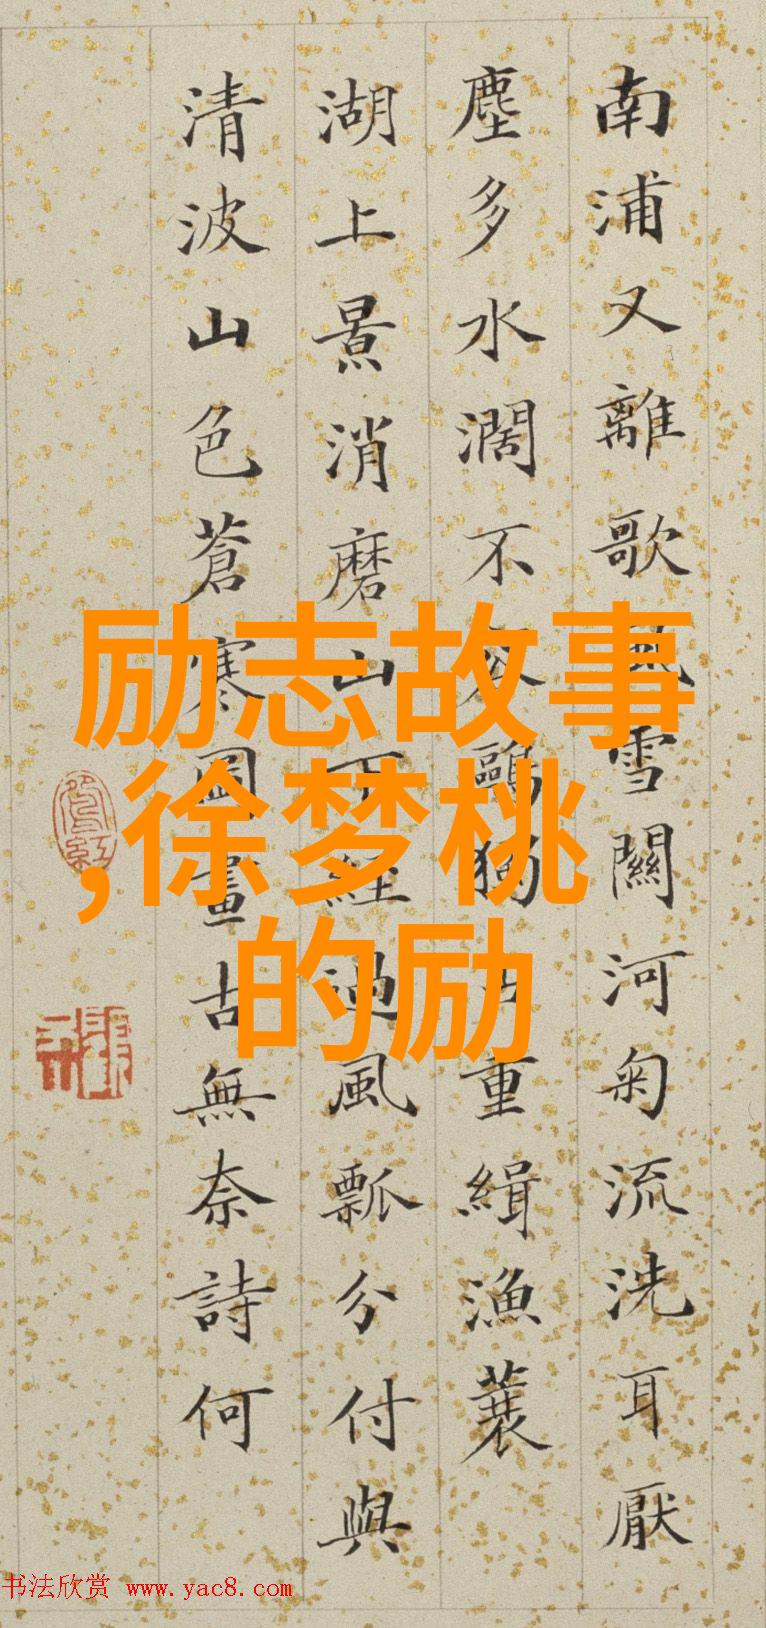 励志故事
,徐梦桃
的励
南浦又離歌風雪關河匊流洗耳厭
塵多水濶不容鷗獨占重緝漁蓑
湖上景消磨山下經過風瓢分付與
清波山色蒼寒圖畫古無奈詩何
书法欣赏 www.yac8.com